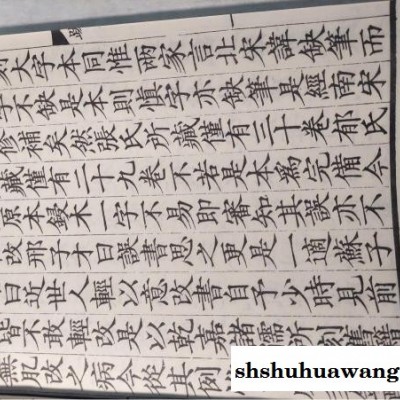 大字本同惟兩家言北宋諱缺筆而
字不缺是本則慎字亦缺筆是經南宋
修補矣然張氏所藏僅有三十卷郁氏
藏僅有二十九卷不若是本為完備今
原本鋟木一字不易即審知其誤亦不
改邢子才曰誤書思之更是一適蘇子
曰近世人輕以意改書自予少時見前
皆不敢輕改是以乾嘉諸儒所刻舊籍
無肊改之病今從其例
shshuhuawang